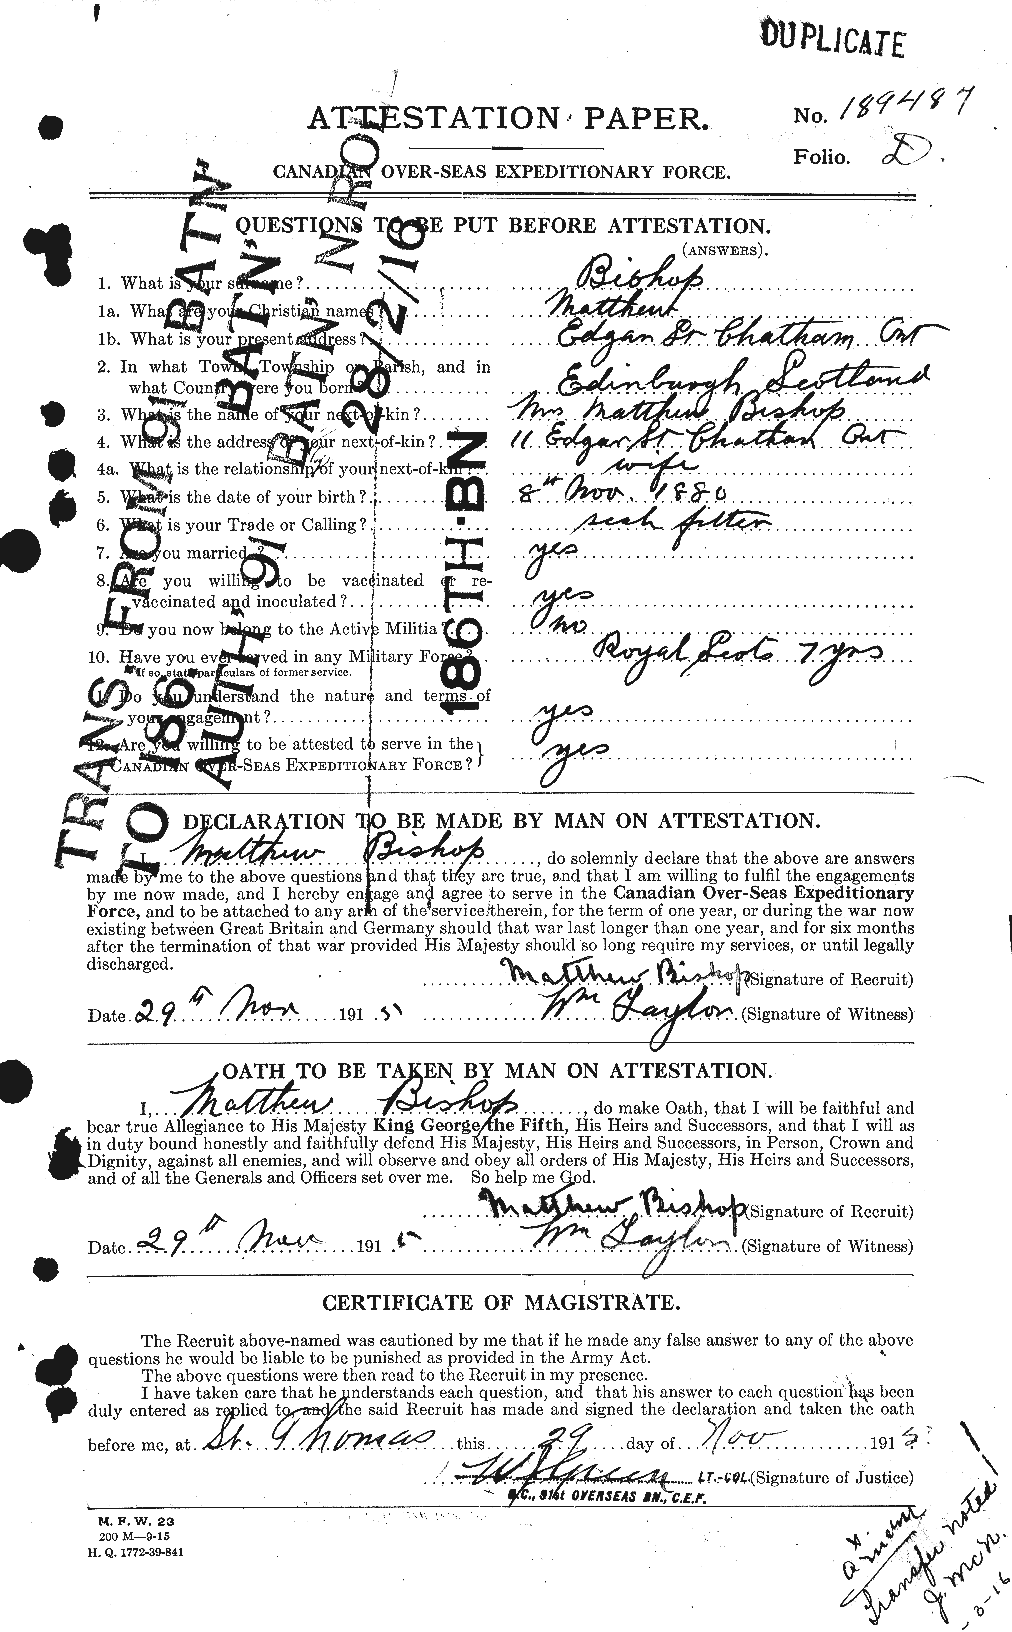 DUPLICATE
ATTESTATION PAPER.
No. 189487
Folio. D.
CANADIAN OVER-SEAS EXPEDITIONARY FORCE.
QUESTIONS TO BE PUT BEFORE ATTESTATION.
(ANSWERS).
1. What is your surname? Bishop
1a. What are your Christian names? Matthew
1b. What is your present address? Edgar St Chatham Ont
2. In what Town, Township or Parish, and in
what Country were you born? Edinburgh Scotland
3. What is the name of your next-of-kin? Mrs Matthew Bishop
4. What is the address of your next-of-kin? 11 Edgar St Chatham Ont
4a. What is the relationship of your next-of-kin? wife
5. What is the date of your birth? 8th Nov. 1880
6. What is your Trade or Calling? fitter
7. Are you married? yes
8. Are you willing to be vaccinated or re-
vaccinated and inoculated? yes
9. Do you now belong to the Active Militia? no
10. Have you ever served in any Military Force? Royal Scots 7 yrs
If so, state particulars of former service.
11. Do you understand the nature and terms of
your engagement? yes
12. Are you willing to be attested to serve in the
CANADIAN OVER-SEAS EXPEDITIONARY FORCE? yes
TRANS. FROM 91 BATN
TO 186 BATN'
AUTH' 91 BATN' N RO
28/2/16
186TH·BN
DECLARATION TO BE MADE BY MAN ON ATTESTATION.
I, Matthew Bishop, do solemnly declare that the above are answers
made by me to the above questions and that they are true, and that I am willing to fulfil the engagements
by me now made, and I hereby engage and agree to serve in the Canadian Over-Seas Expeditionary
Force, and to be attached to any arm of the service therein, for the term of one year, or during the war now
existing between Great Britain and Germany should that war last longer than one year, and for six months
after the termination of that war provided His Majesty should so long require my services, or until legally
discharged.
Matthew Bishop (Signature of Recruit)
Date 29th Nov 1915 Wm Taylor (Signature of Witness)
OATH TO BE TAKEN BY MAN ON ATTESTATION.
I, Matthew Bishop, do make Oath, that I will be faithful and
bear true Allegiance to His Majesty King George the Fifth, His Heirs and Successors, and that I will as
in duty bound honestly and faithfully defend His Majesty, His Heirs and Successors, in Person, Crown and
Dignity, against all enemies, and will observe and obey all orders of His Majesty, His Heirs and Successors,
and of all the Generals and Officers set over me. So help me God.
Matthew Bishop (Signature of Recruit)
Date 29th Nov 1915 Wm Taylor (Signature of Witness)
CERTIFICATE OF MAGISTRATE.
The Recruit above-named was cautioned by me that if he made any false answer to any of the above
questions he would be liable to be punished as provided in the Army Act.
The above questions were then read to the Recruit in my presence.
I have taken care that he understands each question, and that his answer to each question has been
duly entered as replied to, and the said Recruit has made and signed the declaration and taken the oath
before me, at St. Thomas this 29 day of Nov 1915
LT.-COL. (Signature of Justice)
O.C., 91st OVERSEAS BN., C.E.F.
M. F. W. 23
200 M—9-15
H. Q. 1772-39-841
Transfer noted
J. McN.
-3-16